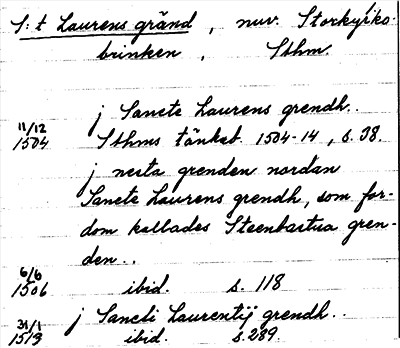 S:t Laurens gränd, nuv. Storkyrko-
brinken, Sthm.
j Sancte Laurens grendh..
11/12 1504 Sthms tänkeb. 1504-14, s. 38.
j nesta grenden nordan
Sancte Laurens grendh, som for-
dom kallades Steenbastua gren-
den..
6/6 1506 ibid. s. 118
j Sancti Laurentij grendh..
31/1 1513 ibid. s. 289.